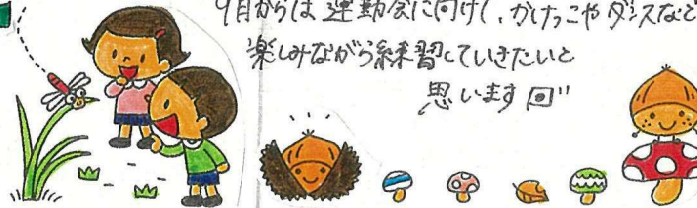 9月からは運動会に向けて、かけっこやダンスなど
楽しみながら練習していきたいと
思います